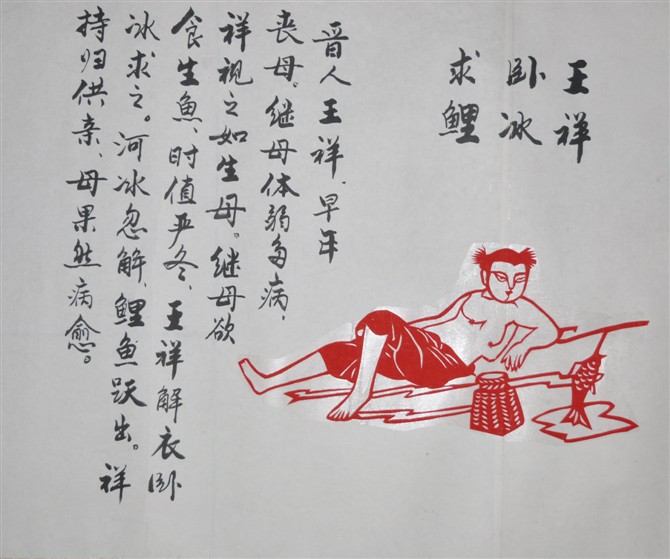 王祥
卧冰
求鲤
晋人王祥、早年
丧母。继母体弱多病，
祥视之如生母。继母欲
食生鱼、时值严冬、王祥解衣卧
冰求之。河冰忽解、鲤鱼跃出。祥
持归供亲、母果然病愈。